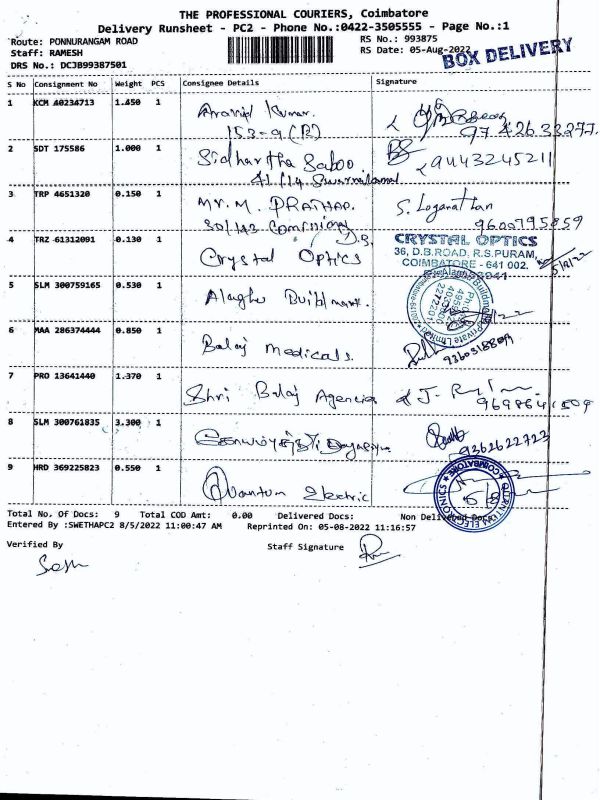 THE PROFESSIONAL COURIERS, Coimbatore
Delivery Runsheet - PC2 - Phone No.:0422-3505555 - Page No.:1
Route: PONNURANGAM ROAD
RS No.: 993875
Staff: RAMESH
RS Date: 05-Aug-2022
BOX DELIVERY
DRS No.: DCJB99387501
S No Consignment No Weight PCS Consignee Details Signature
1 KCM 40234713 1.450 1 Aravind Kumar.
153-9 (B)
2 SDT 175586 1.000 1 Sidhartha Saboo 9443245211
41/14 Swarnalamal
3 TRP 4651320 0.150 1 Mr. M. PRATHAP. S. Loganathan
30/143 9600795859
4 TRZ 61312091 0.130 1 Crystal Optics
CRYSTAL OPTICS
36, D.B.ROAD, R.S.PURAM,
COIMBATORE - 641 002.
5/8/22
5 SLM 300759165 0.530 1 Alaghu Buildmart.
6 MAA 286374444 0.850 1 Balaj Medicals. 9360318809
7 PRO 13641440 1.370 1 Shri Balaj Agencies
8 SLM 300761835 3.300 1
9362622723
9 HRD 369225823 0.550 1 Quantum Electric
COIMBATORE
5/8
Total No. Of Docs: 9 Total COD Amt: 0.00 Delivered Docs: Non Delivered Docs:
Entered By :SWETHAPC2 8/5/2022 11:00:47 AM Reprinted On: 05-08-2022 11:16:57
Verified By Staff Signature